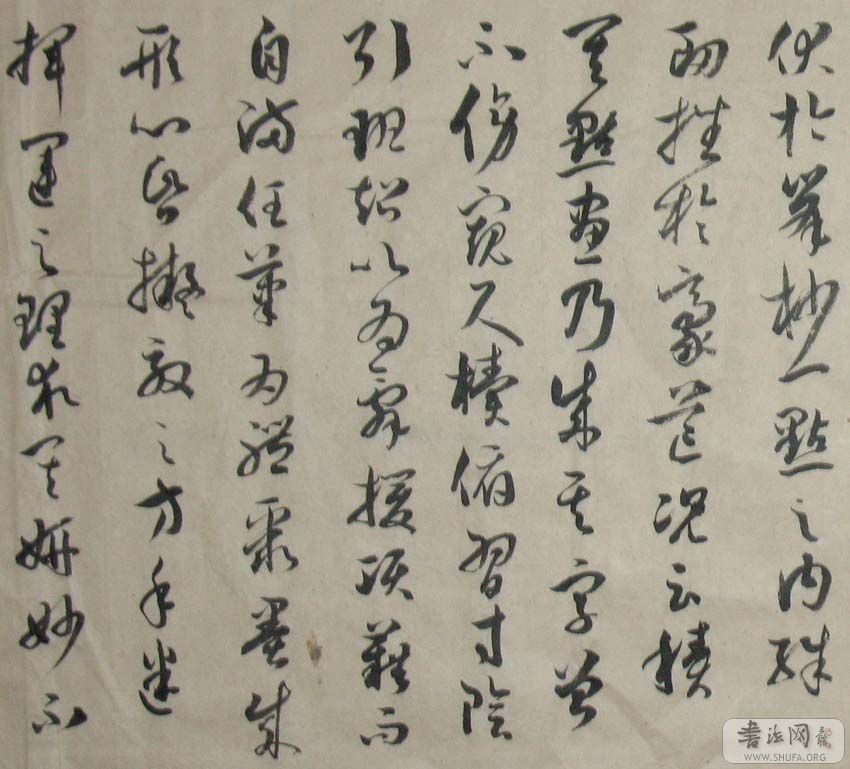 伏於峯杪一點之内殊
衂挫於豪芒況云積
其點畫乃成其字曾
不傍窺尺牘俯習寸陰
引班超以為辭援項籍而
自滿任筆為體聚墨成
形心昏擬效之方手迷
揮運之理求其妍妙不
書法网
WWW.SHUFA.ORG